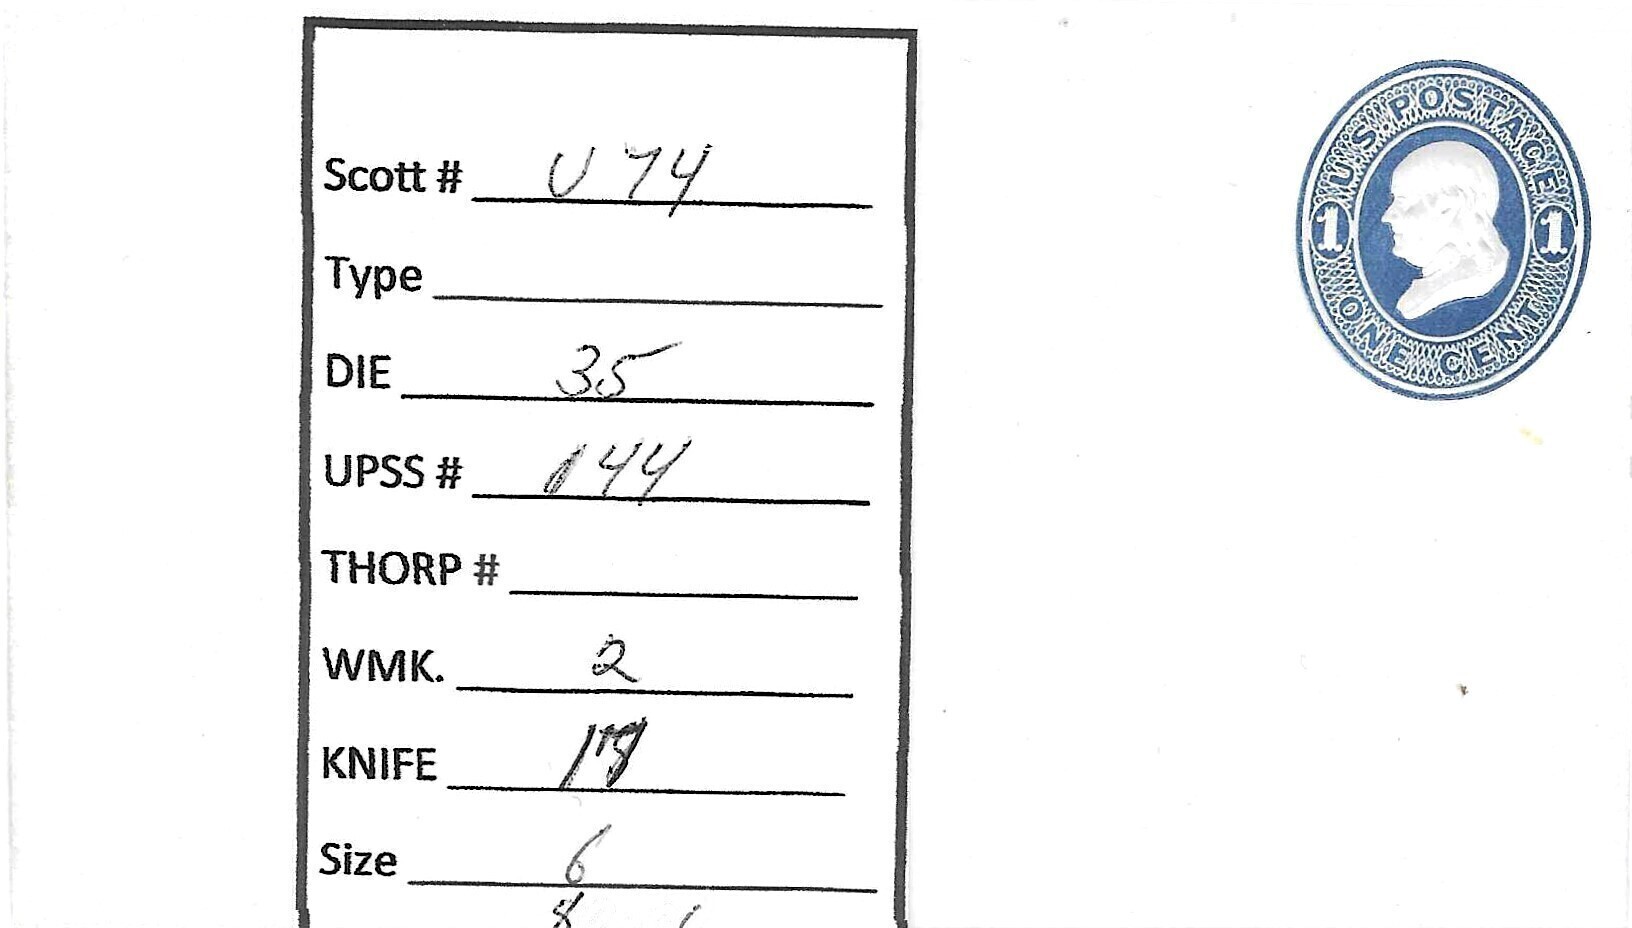 Scott # U 74
Type
DIE 35
UPSS # 144
THORP #
WMK. 2
KNIFE
Size 6
U.S. POSTAGE
1 1
ONE CENT